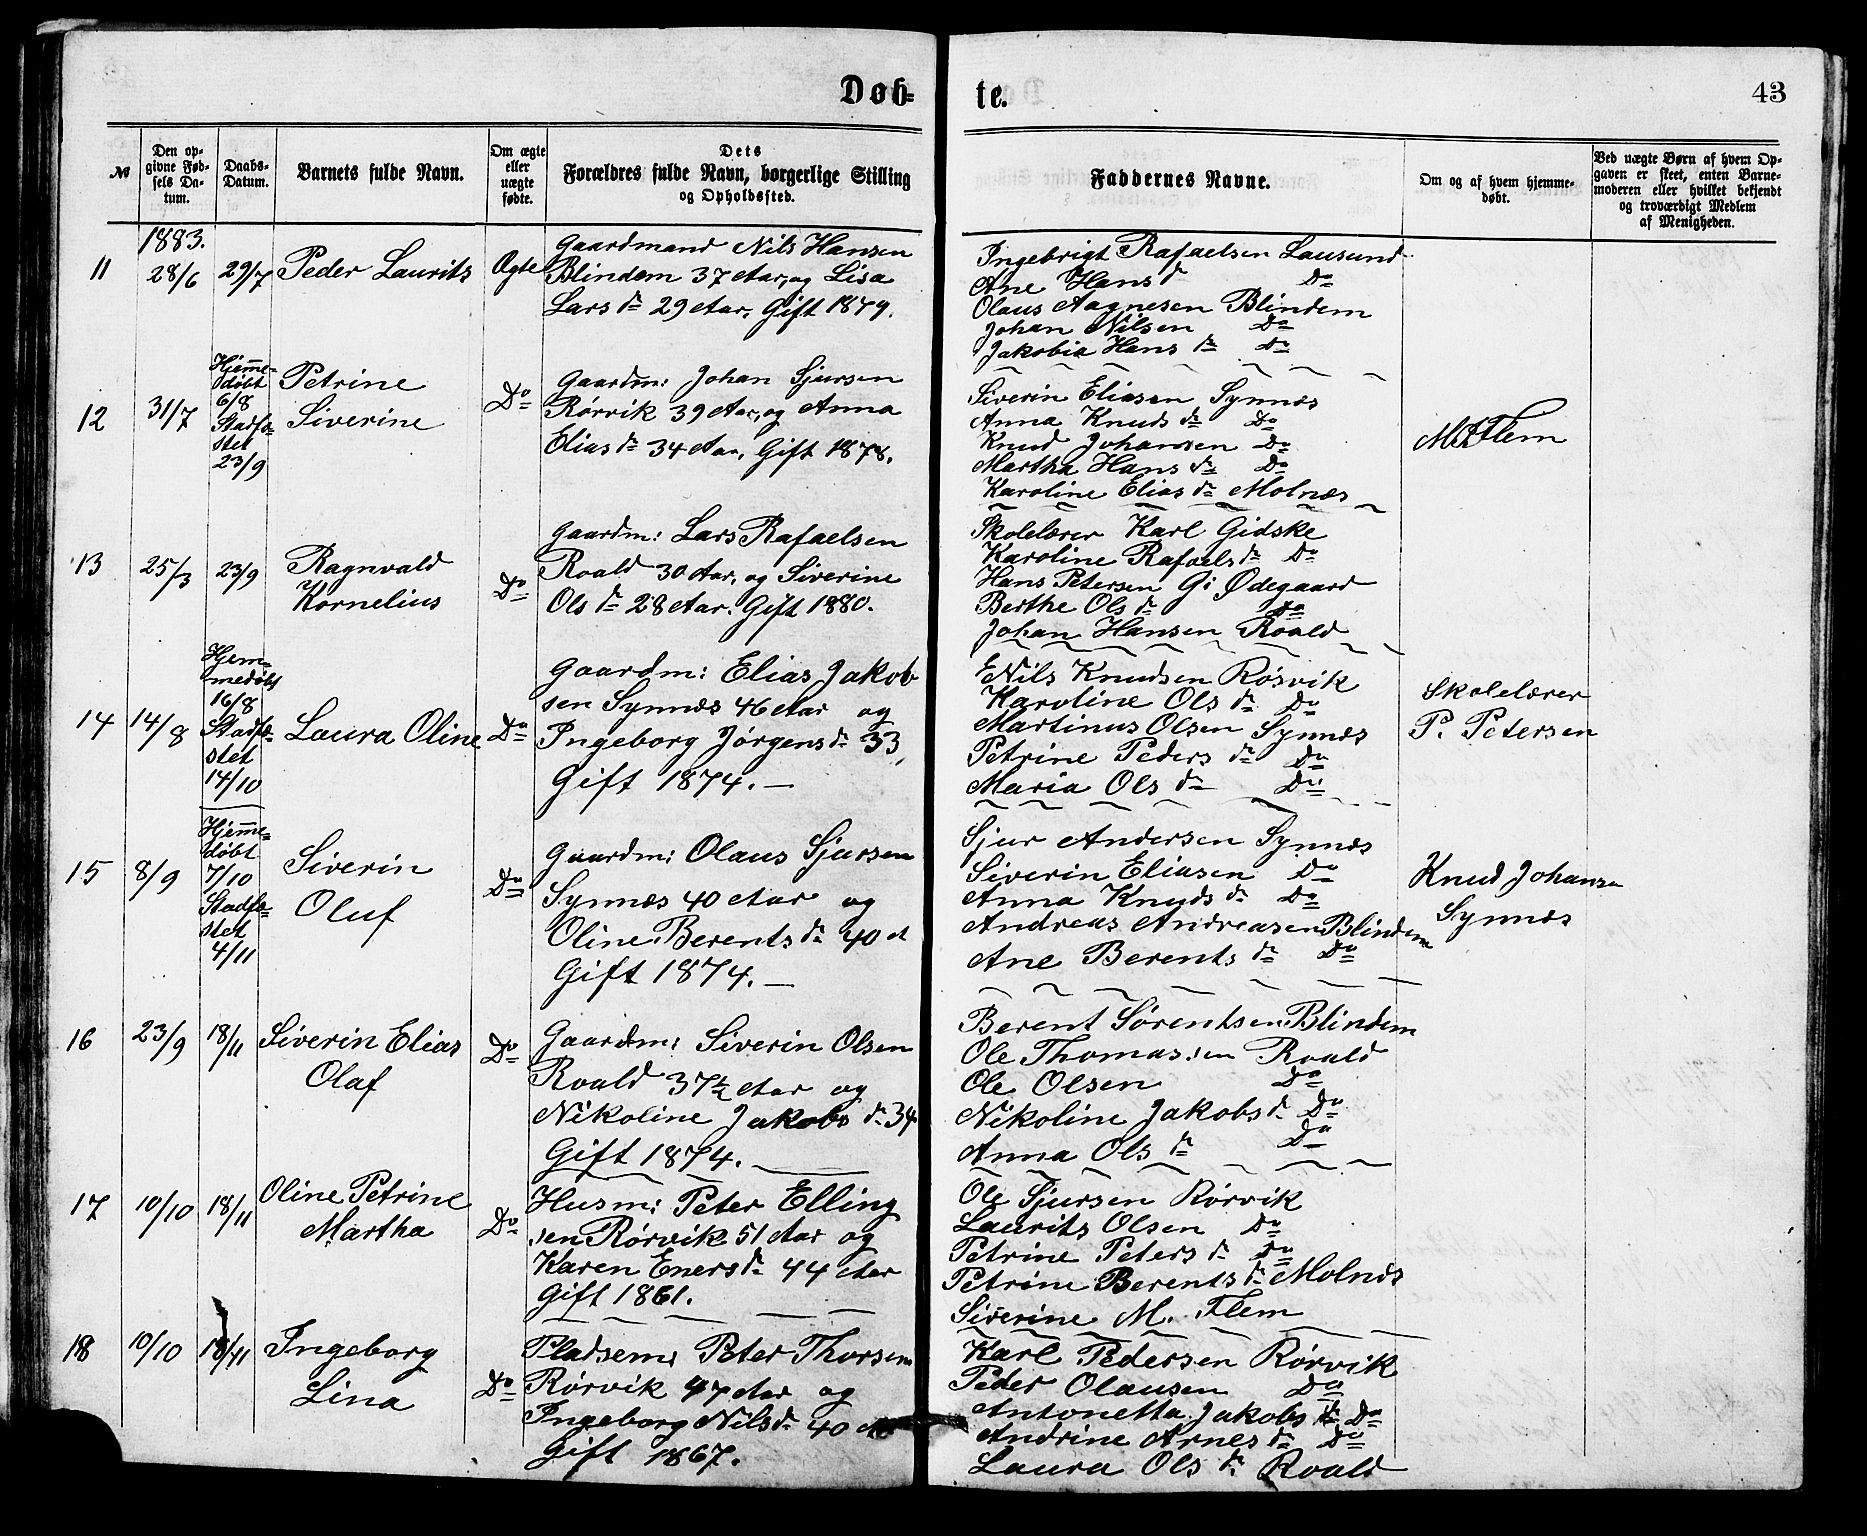 Døb-
te.
43
№
Den op-
givne Fød-
sels Da-
tum.
Daabs-
Datum.
Barnets fulde Navn.
Om ægte
eller
uægte
fødte.
Dets
Forældres fulde Navn, borgerlige Stilling
og Opholdssted.
Faddernes Navne.
Om og af hvem hjemme-
døbt.
Ved uægte Børn af hvem Op-
gaven er skeet, enten Barne-
moderen eller hvilket bekjendt
og troværdigt Medlem
af Menigheden.
1883.
11
28/6
29/7
Peder Laurits
Ægte
Gaardmand Nils Hansen
Blindem 37 Aar, og Lisa
Lars dr 29 Aar. Gift 1879.
Ingebrigt Rafaelsen Lausund
Ane Hans dr Do
Olaus Aagnesen Blindem
Johan Nilsen Do
Jakobia Hans dr Do
12
31/7
Hjemme-
døbt
6/8
Stadfæ-
stet
23/9
Petrine
Siverine
Do
Gaardm: Johan Sjursen
Rørvik 39 Aar, og Anna
Elias dr 34 Aar. Gift 1878.
Siverin Eliasen Synnæs
Anna Knuds dr Do
Knud Johansen Do
Martha Hans dr Do
Karoline Elias dr Molnæs
Flem
13
25/3
23/9
Ragnvald
Kornelius
Do
Gaardm: Lars Rafaelsen
Roald 30 Aar, og Siverine
Ols dr 28 Aar. Gift 1880.
Skolelærer Karl Gidske
Karoline Rafaels dr Do
Hans Petersen G: Ødegaard
Berthe Ols dr Do
Johan Hansen Roald
14
14/8
Hjem-
medøbt
16/8
Stadfæ-
stet
14/10
Laura Oline
Do
Gaardm: Elias Jakob
sen Synnæs 46 Aar og
Ingeborg Jørgens dr 33,
Gift 1874.—
Nils Knudsen Røsvik
Karoline Ols dr Do
Martinus Olsen Synnæs
Petrine Peders dr Do
Maria Ols dr Do
Skolelærer
P. Petersen
15
8/9
Hjemme-
døbt
7/10
Stadfæ-
stet
4/11
Siverin
Oluf
Do
Gaardm: Olaus Sjursen
Synnæs 40 Aar og
Oline Berents dr 40 A
Gift 1874.—
Sjur Andersen Synnæs
Siverin Eliasen Do
Anna Knuds dr Do
Andreas Andreasen Blindem
Ane Berents dr Do
Knud Johansen
Synnæs
16
23/9
18/11
Siverin Elias
Olaf
Do
Gaardm: Siverin Olsen
Roald 37½ Aar og
Nikoline Jakobs dr 34
Gift 1874.—
Berent Sørentsen Blindem
Ole Thomassen Roald
Ole Olsen Do
Nikoline Jakobs dr Do
Anna Ols dr Do
17
10/10
18/11
Oline Petrine
Martha
Do
Husm: Peter Elling
sen Rørvik 51 Aar og
Karen Eners dr 44 Aar
Gift 1861.
Ole Sjursen Rørvik
Laurits Olsen Do
Petrine Peters dr Do
Petrine Berents dr Molnæs
Siverine M. Flem
18
10/10
18/11
Ingeborg
Lina
Do
Pladsem: Peter Thorsen
Rørvik 47 Aar og
Ingeborg Nils dr 40 A
Gift 1867.
Karl Pedersen Rørvik
Peder Olausen Do
Antonetta Jakobs dr Do
Andrine Arnes dr Do
Laura Ols dr Roald